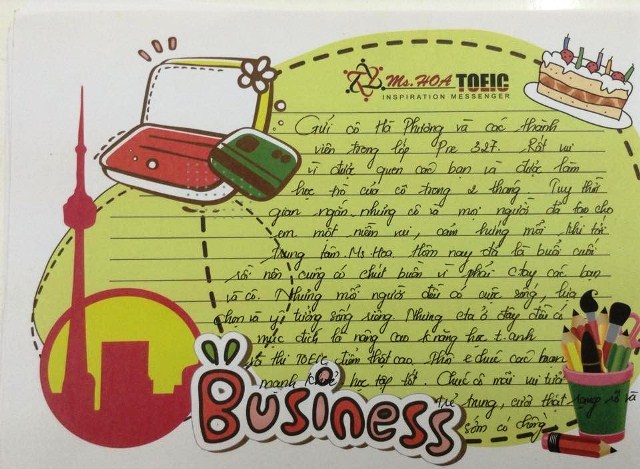 Ms.HOA TOEIC
INSPIRATION MESSENGER
Gửi cô Hà Phương và các thành
viên trong lớp Pre 327. Rất vui
vì được quen các bạn và được làm
học trò của cô trong 2 tháng. Tuy thời
gian ngắn, nhưng cô và mọi người đã tạo cho
em một niềm vui, cảm hứng mới khi tới
Trung tâm Ms Hoa. Hôm nay đã là buổi cuối
rồi nên cũng có chút buồn vì phải ctay các bạn
và cô. Nhưng mỗi người đều có cuộc sống, lựa
chọn và ý tưởng sống riêng. Nhưng cta ở đây đều có
mục đích là nâng cao k năng học t.anh
và thi TOEIC điểm thật cao. chúc các bạn
ngành học tập tốt. Chúc cô mãi vui tươi
trẻ trung, cười thật và
sớm có chồng
Business